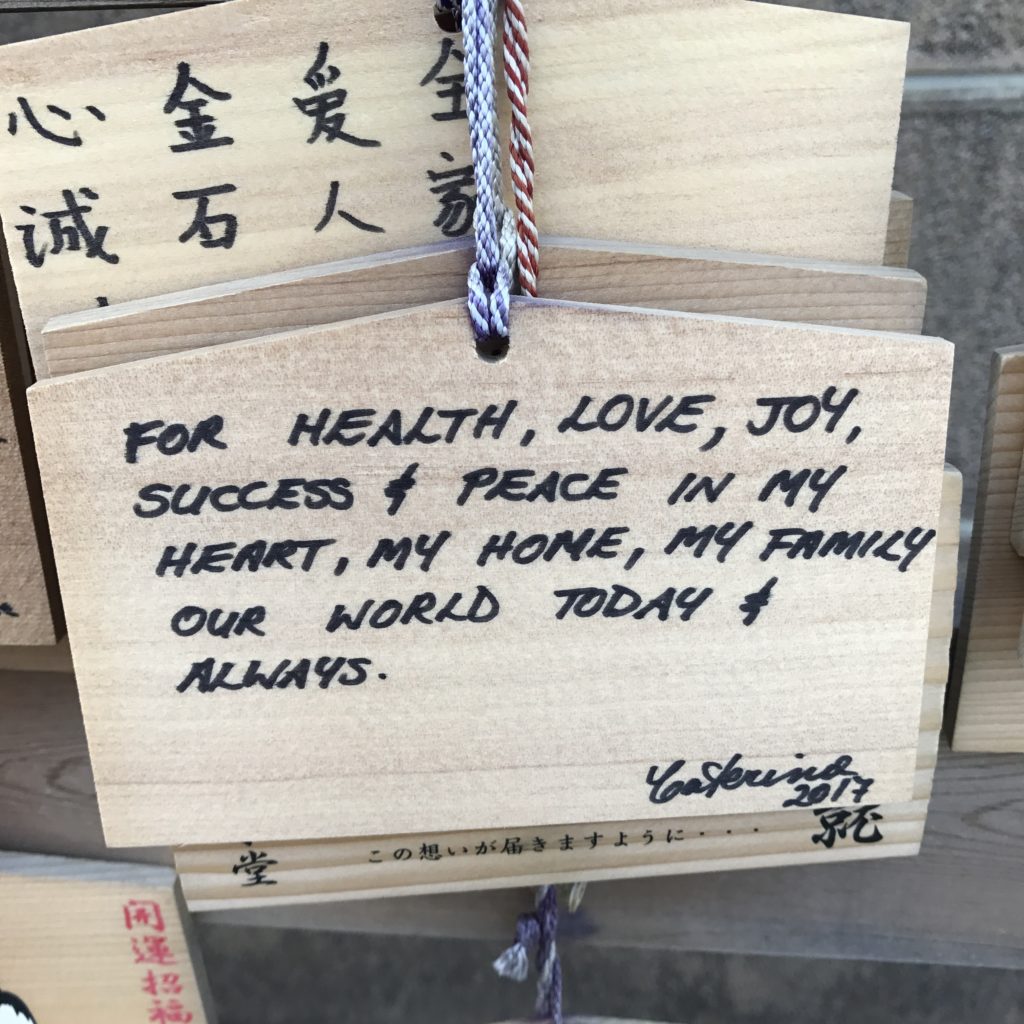 全家
爱人
金石
心誠
FOR HEALTH, LOVE, JOY,
SUCCESS & PEACE IN MY
HEART, MY HOME, MY FAMILY
OUR WORLD TODAY &
ALWAYS.
Caterina
2017
この想いが届きますように・・・
堂
開運招福